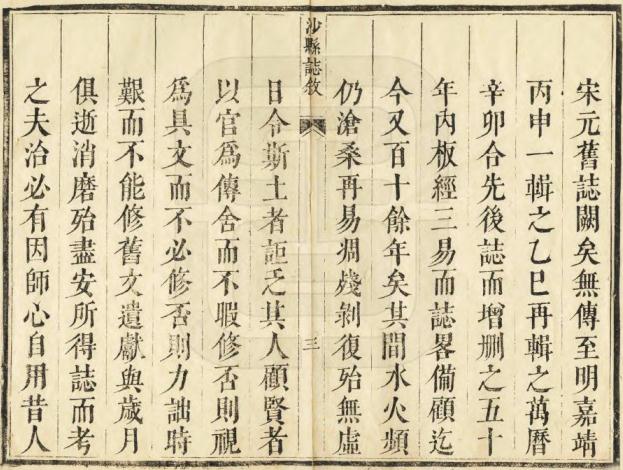 宋元舊誌闕矣無傳至明嘉靖
丙申一輯之乙巳再輯之萬曆
辛卯合先後誌而增刪之五十
年內板經三易而誌畧備顧迄
今又百十餘年矣其間水火頻
仍滄桑再易凋殘剝復殆無虛
沙縣誌敘
三
日令斯土者詎乏其人顧賢者
以官爲傳舍而不暇修否則視
爲具文而不必修否則力詘時
艱而不能修舊文遺獻與歲月
俱逝消磨殆盡安所得誌而考
之夫治必有因師心自用昔人